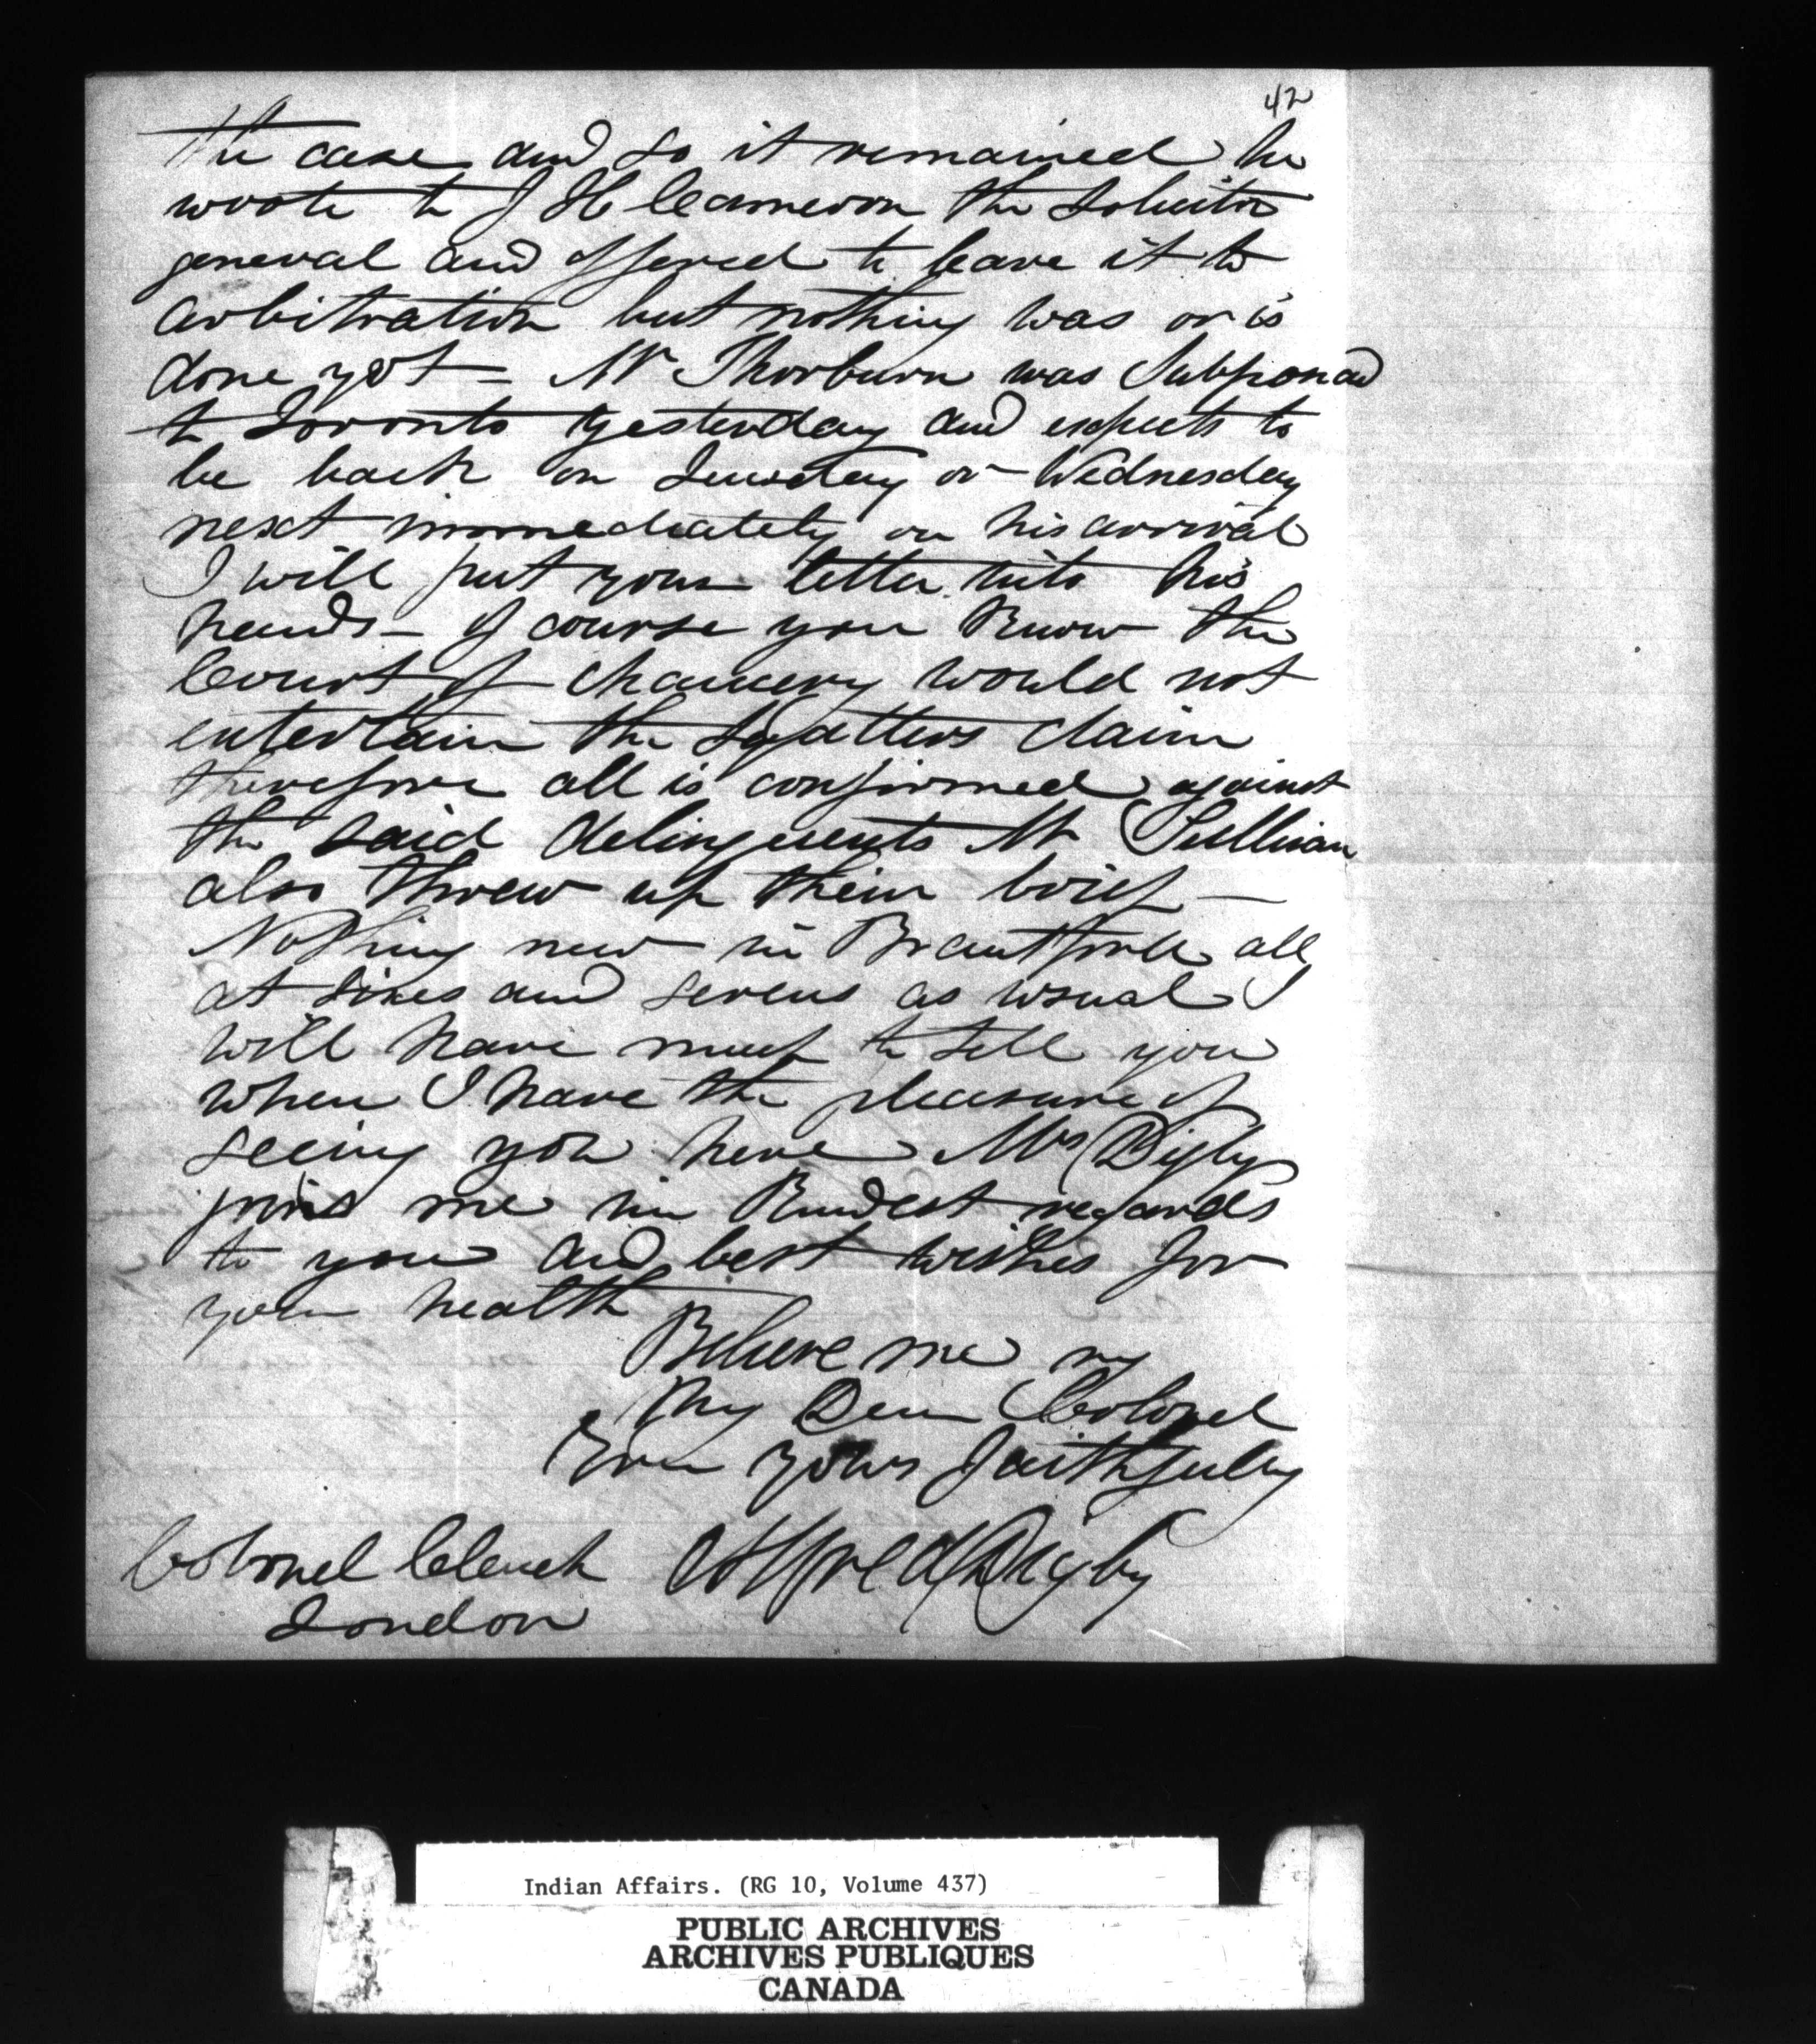 42
the case and so it remained he
wrote to J H Cameron the Solicitor
general and offered to leave it to
arbitration but nothing was or is
done yet - Mr Thorburn was Subponad
to Toronto yesterday and expects to
be back on Tuesday or Wednesday
next immediately on his arrival
I will put your letter into his
hands - of course you know the
Court of Chancery would not
entertain the Sqatters claim
therefore all is confirmed against
the said delinquents Mr Sullivan
also threw up their brief -
Nothing new in Brantford all
at sixes and sevens as usual I
will have much to tell you
when I have the pleasure of
seeing you here Mrs Digby
joins me in kindest regards
to you and best wishes for
your health
Believe me my
My Dear Colonel
Ever yours faithfully
Alfred Digby
Colonel Clench
London
Indian Affairs. (RG 10, Volume 437)
PUBLIC ARCHIVES
ARCHIVES PUBLIQUES
CANADA